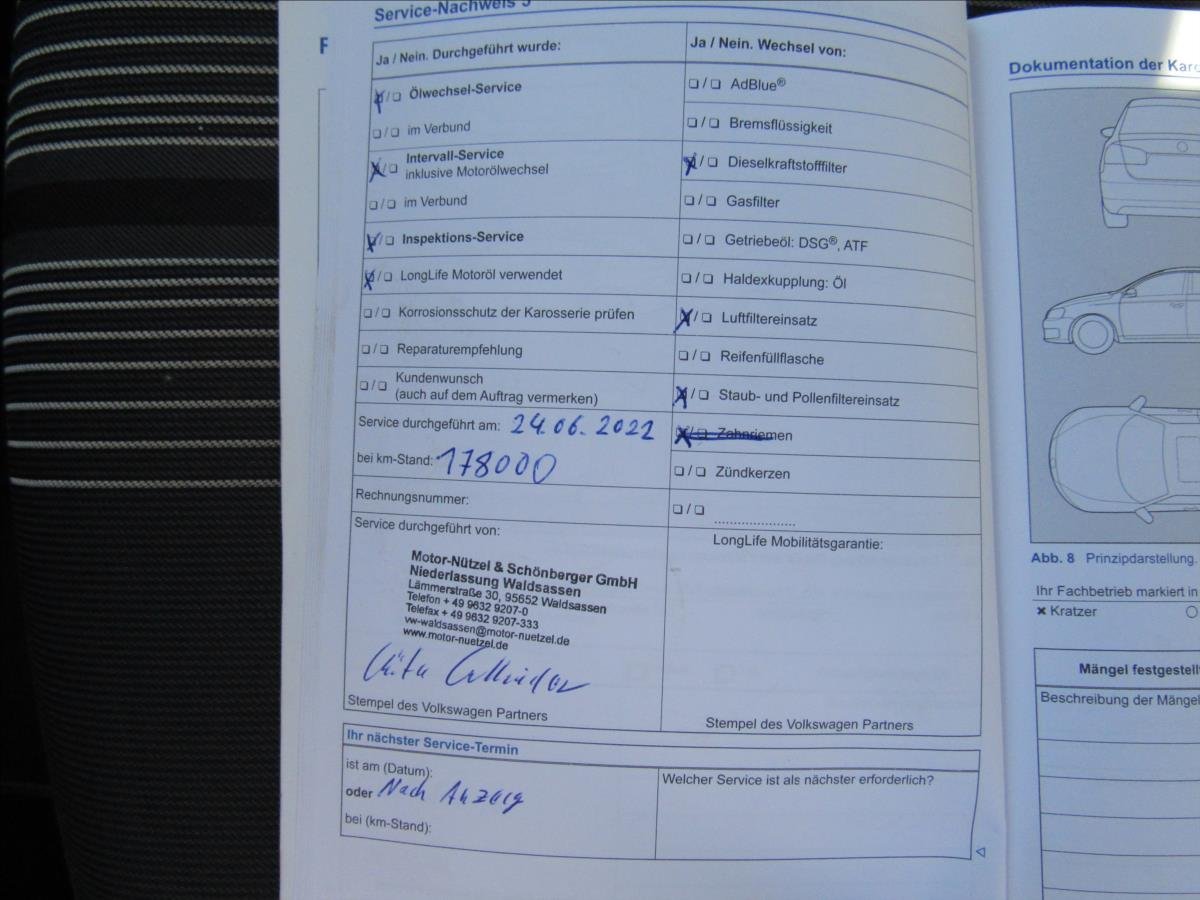 Service-Nachweis
F
Ja / Nein. Durchgeführt wurde:
Ölwechsel-Service
im Verbund
Intervall-Service
inklusive Motorölwechsel
im Verbund
Inspektions-Service
LongLife Motoröl verwendet
Korrosionsschutz der Karosserie prüfen
Reparaturempfehlung
Kundenwunsch
(auch auf dem Auftrag vermerken)
Service durchgeführt am: 24.06.2022
bei km-Stand: 178000
Rechnungsnummer:
Service durchgeführt von:
Motor-Nützel & Schönberger GmbH
Niederlassung Waldsassen
Lämmerstraße 30, 95652 Waldsassen
Telefon + 49 9632 9207-0
Telefax + 49 9632 9207-333
vw-waldsassen@motor-nuetzel.de
www.motor-nuetzel.de
Stempel des Volkswagen Partners
Ja / Nein. Wechsel von:
AdBlue®
Bremsflüssigkeit
Dieselkraftstofffilter
Gasfilter
Getriebeöl: DSG®, ATF
Haldexkupplung: Öl
Luftfiltereinsatz
Reifenfüllflasche
Staub- und Pollenfiltereinsatz
Zahnriemen
Zündkerzen
....................
LongLife Mobilitätsgarantie:
Stempel des Volkswagen Partners
Ihr nächster Service-Termin
ist am (Datum):
oder Nach Anzeig
bei (km-Stand):
Welcher Service ist als nächster erforderlich?
Dokumentation der Karo
Abb. 8 Prinzipdarstellung.
Ihr Fachbetrieb markiert in
Kratzer
Mängel festgestell
Beschreibung der Mängel